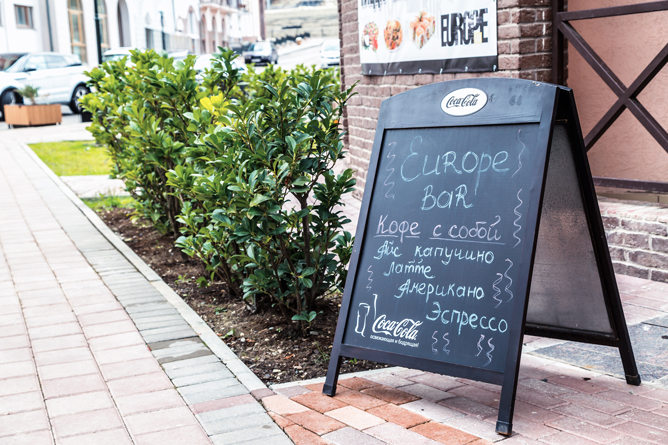 EUROPE
Coca-Cola
Europe
Bar
Кофе с собой
Айс капучино
Латте
Американо
Эспрессо
Coca-Cola
освежающая и бодрящая!